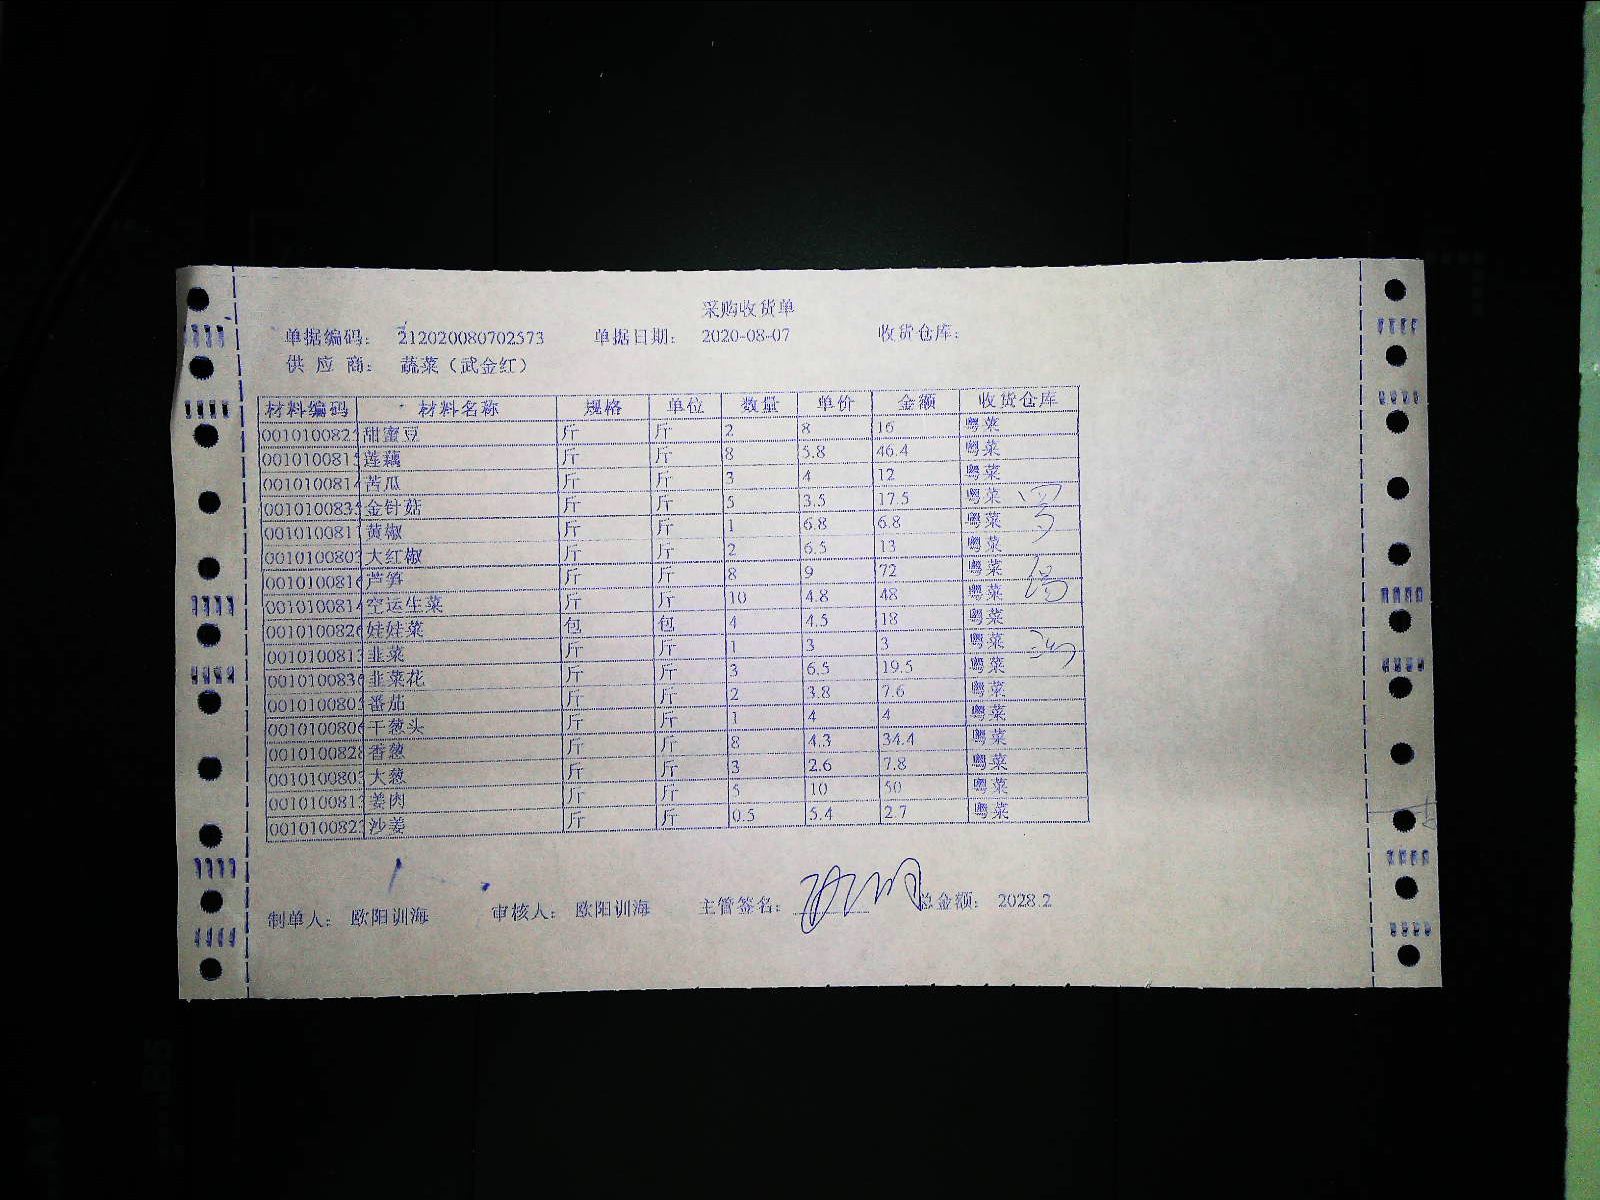 采购收货单
单据编码: 212020080702573 单据日期: 2020-08-07 收货仓库:
供 应 商: 蔬菜（武金红）
材料编码 材料名称 规格 单位 数量 单价 金额 收货仓库
001010082 甜蜜豆 斤 斤 2 8 16 粤菜
001010081 莲藕 斤 斤 8 5.8 46.4 粤菜
001010081 苦瓜 斤 斤 3 4 12 粤菜
001010083 金针菇 斤 斤 5 3.5 17.5 粤菜
001010081 黄椒 斤 斤 1 6.8 6.8 粤菜
001010080 大红椒 斤 斤 2 6.5 13 粤菜
001010081 芦笋 斤 斤 8 9 72 粤菜
001010081 空运生菜 斤 斤 10 4.8 48 粤菜
001010082 娃娃菜 包 包 4 4.5 18 粤菜
001010081 韭菜 斤 斤 1 3 3 粤菜
001010083 韭菜花 斤 斤 3 6.5 19.5 粤菜
001010080 番茄 斤 斤 2 3.8 7.6 粤菜
001010080 干葱头 斤 斤 1 4 4 粤菜
001010082 香葱 斤 斤 8 4.3 34.4 粤菜
001010080 大葱 斤 斤 3 2.6 7.8 粤菜
001010081 姜肉 斤 斤 5 10 50 粤菜
001010082 沙姜 斤 斤 0.5 5.4 2.7 粤菜
制单人: 欧阳训海 审核人: 欧阳训海 主管签名: 总金额: 2028.2